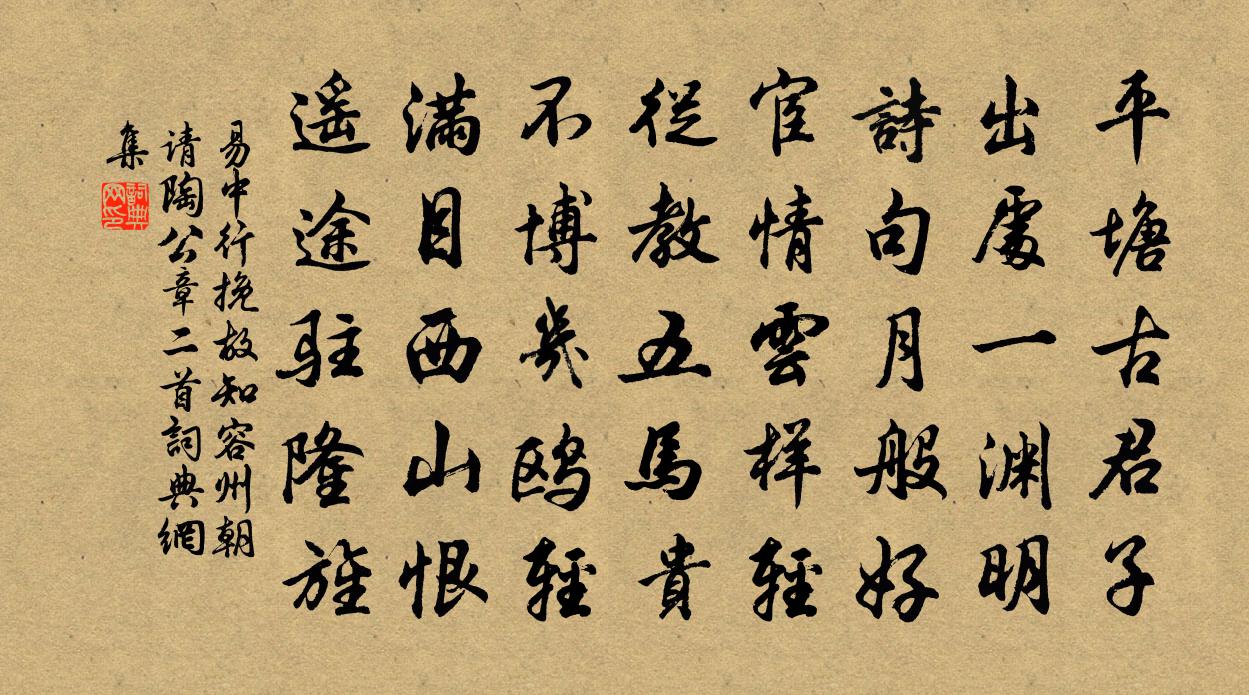 平塘古君子
出處一渊明
詩句月般好
宦情雲样輕
從教五馬貴
不博幾鸥輕
满目西山恨
遥途駐隆旌
易中行挽故知容州朝
请陶公章二首詞典網
集
詞典
网印